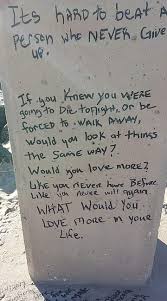 It's HARD to beat a
Person who NEVER Give
up.
If you knew you WERE
going to DIE tonight, or be
forced to WALK AWAY,
Would you look at things
the same way?
Would you love more?
Like you never have Before
Like you never will again
WHAT Would You
LOVE More in your
Life.